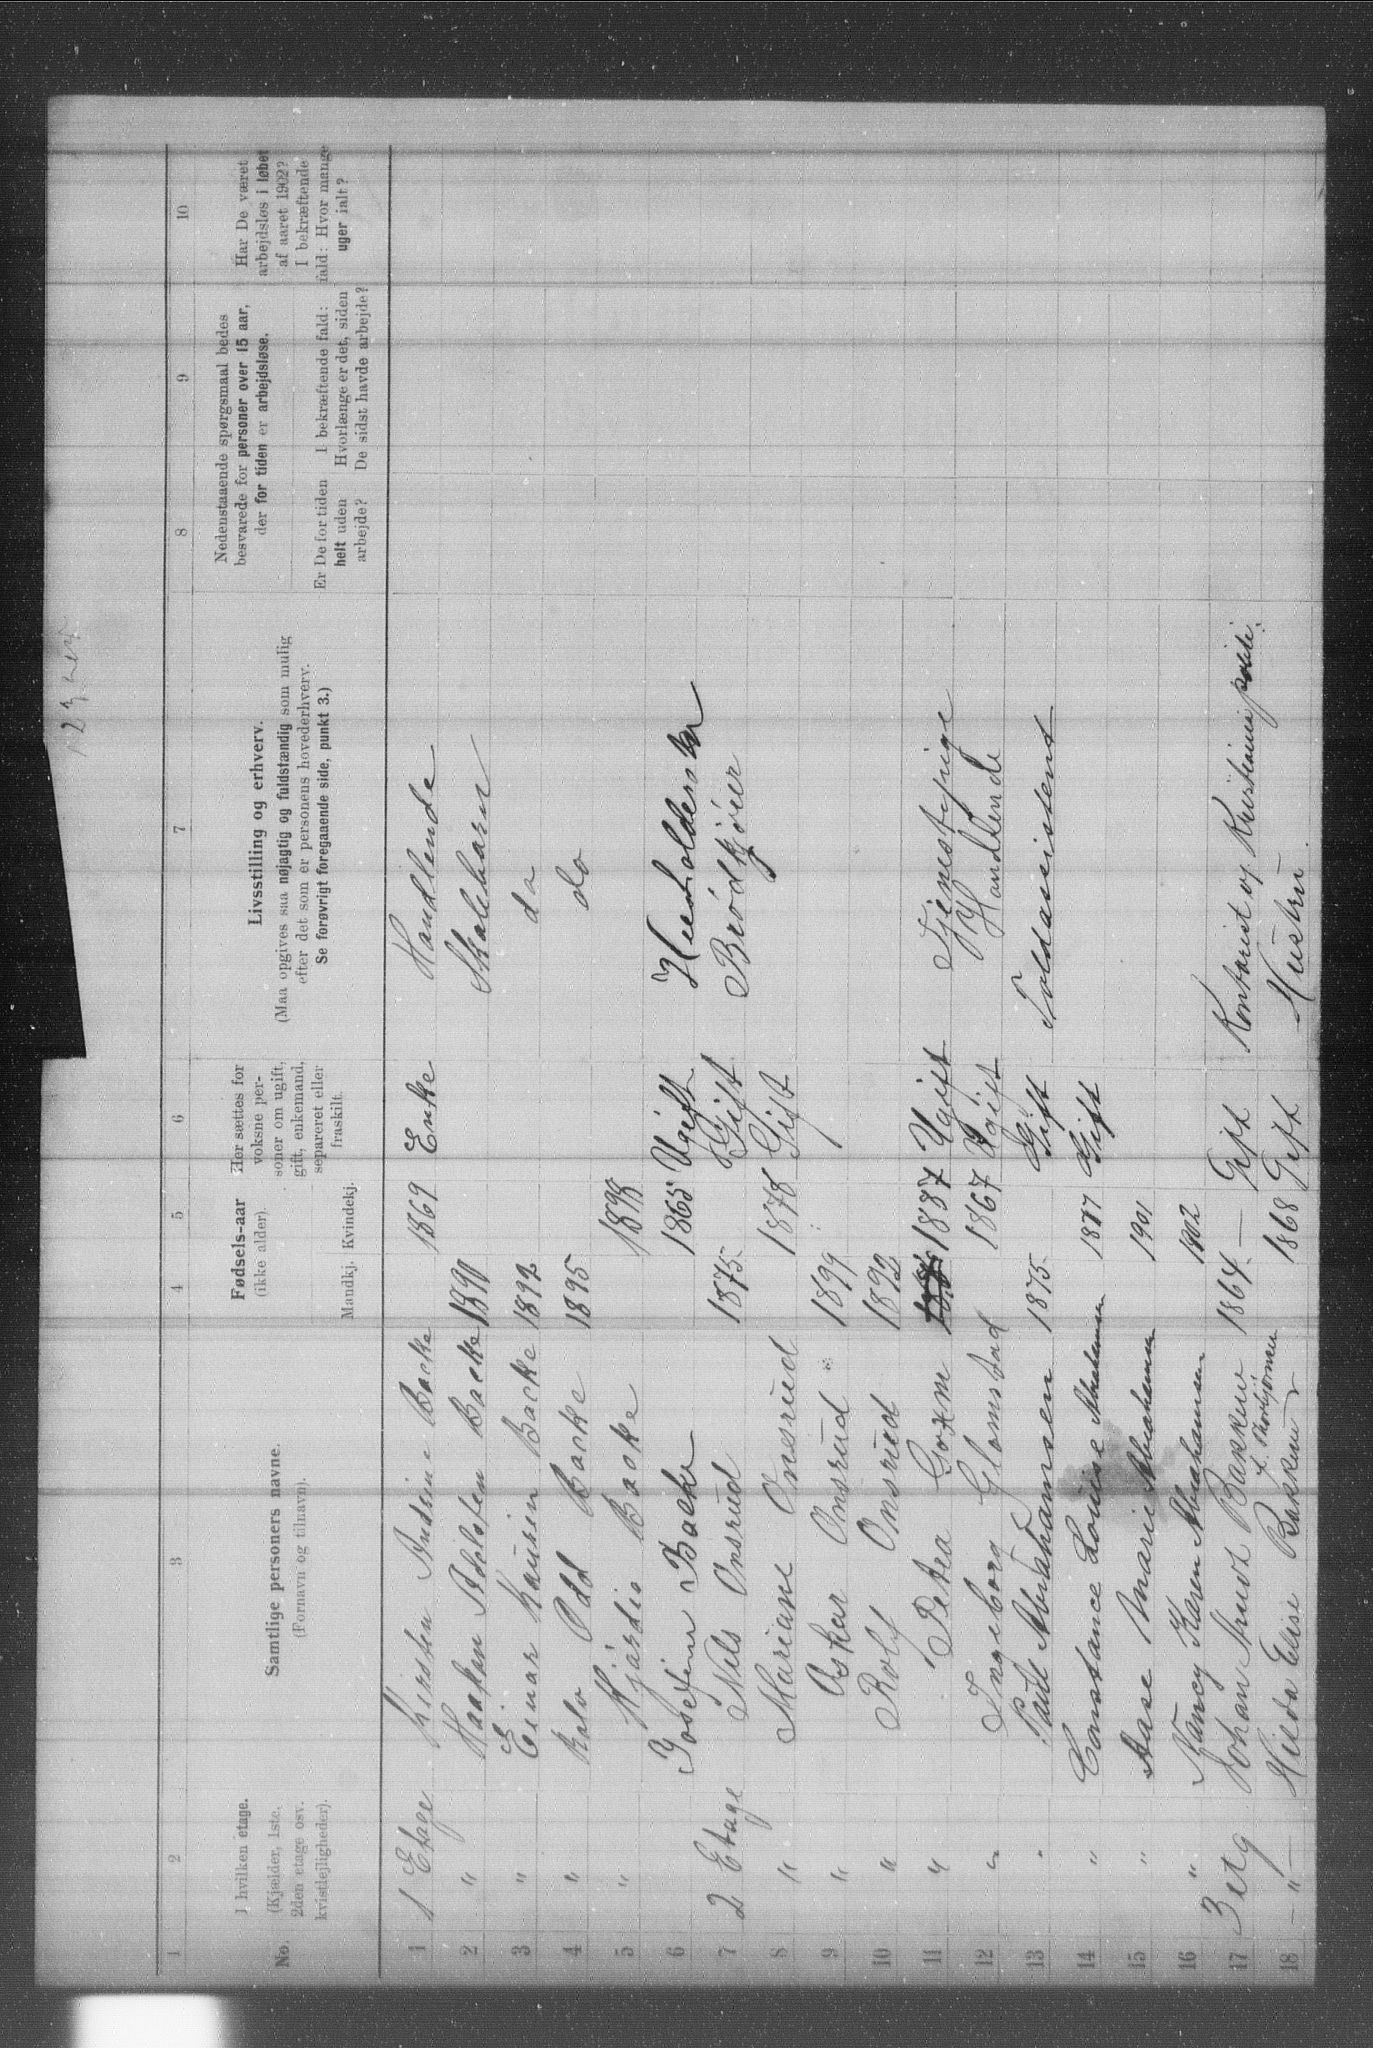 1 2 3 4 5 6 7 8 9 10
No.
I hvilken etage.
(Kjælder, 1ste, 2den etage osv. kvistlejligheder).
Samtlige personers navne.
(Fornavn og tilnavn).
Fødsels-aar
(ikke alder).
Mandkj. Kvindekj.
Her sættes for voksne personer om ugift, gift, enkemand, separeret eller fraskilt.
Livsstilling og erhverv.
(Maa opgives saa nøjagtig og fuldstændig som mulig
efter det som er personens hovederhverv.
Se forøvrigt foregaaende side, punkt 3.)
Nedenstaaende spørgsmaal bedes
besvarede for personer over 15 aar,
der for tiden er arbejdsløse.
Er De for tiden helt uden arbejde?
I bekræftende fald: Hvorlænge er det, siden De sidst havde arbejde?
Har De været arbejdsløs i løbet af aaret 1902? I bekræftende fald: Hvor mange uger ialt?
1 1 Etage Kirsten Andrine Backe 1869 Enke Handlende
2 " Haakon Adolfsen Backe 1890 Skolebarn
3 " Einar Kaurin Backe 1892 do
4 " Odd Backe 1895 do
5 " Hjørdis Backe 1898
6 Josefine Backe 1865 Ugift Husholderske
7 2 Etage Nils Onsrud 1875 Gift Brødkjører
8 " Mariane Onsrud 1878 Gift
9 " Oskar Onsrud 1899
10 " Rolf Onsrud 1892
11 " Petra Goxm 1887 Ugift Tjenestepige
12 " Ingeborg Glomstad 1867 Ugift Handlende
13 " Paul Abrahamsen 1875 Gift Toldassistent
14 " Constance Louise Abrahamsen 1877 Gift
15 " Aase Marie Abrahamsen 1901
16 " Nancy Karen Abrahamsen 1902
17 3 etg Johan Knut Bakken 1864 — Gift Kontorist og Kristiania politi.
18 — " — Hilda Elise Bakken f. Thorbjørnsen 1868 Gift Hustru